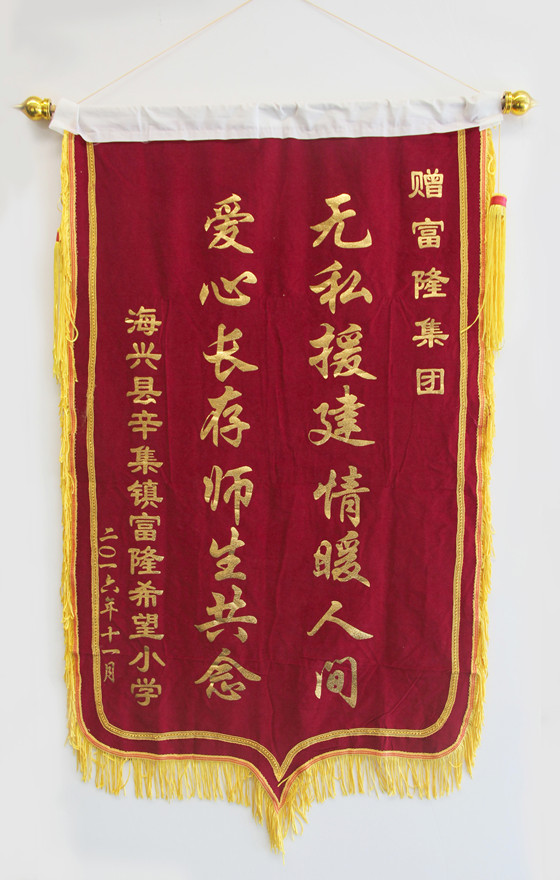 赠富隆集团
无私援建情暖人间
爱心长存师生共念
海兴县辛集镇富隆希望小学
二〇一六年十一月